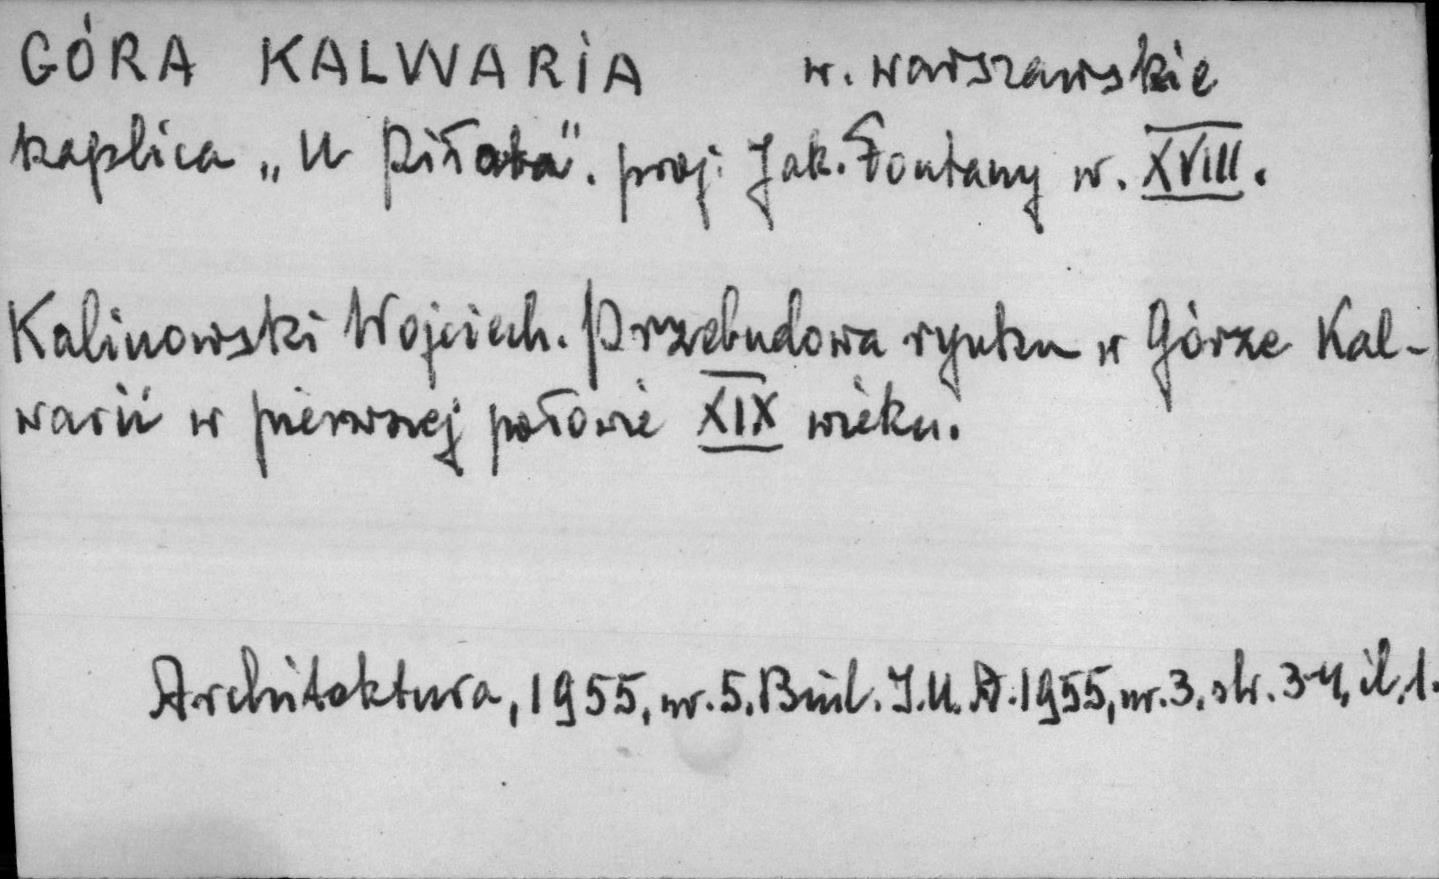 GÓRA KALWARIA w. warszawskie
kaplica „U Piłata". proj. Jak. Fontany w. XVIII.
Kalinowski Wojciech. Przebudowa rynku w Górze Kal-
warii w pierwszej połowie XIX wieku.
Architektura, 1955, nr. 5. Biul. I.U.A. 1955, nr. 3, str. 3-4, il. 1.